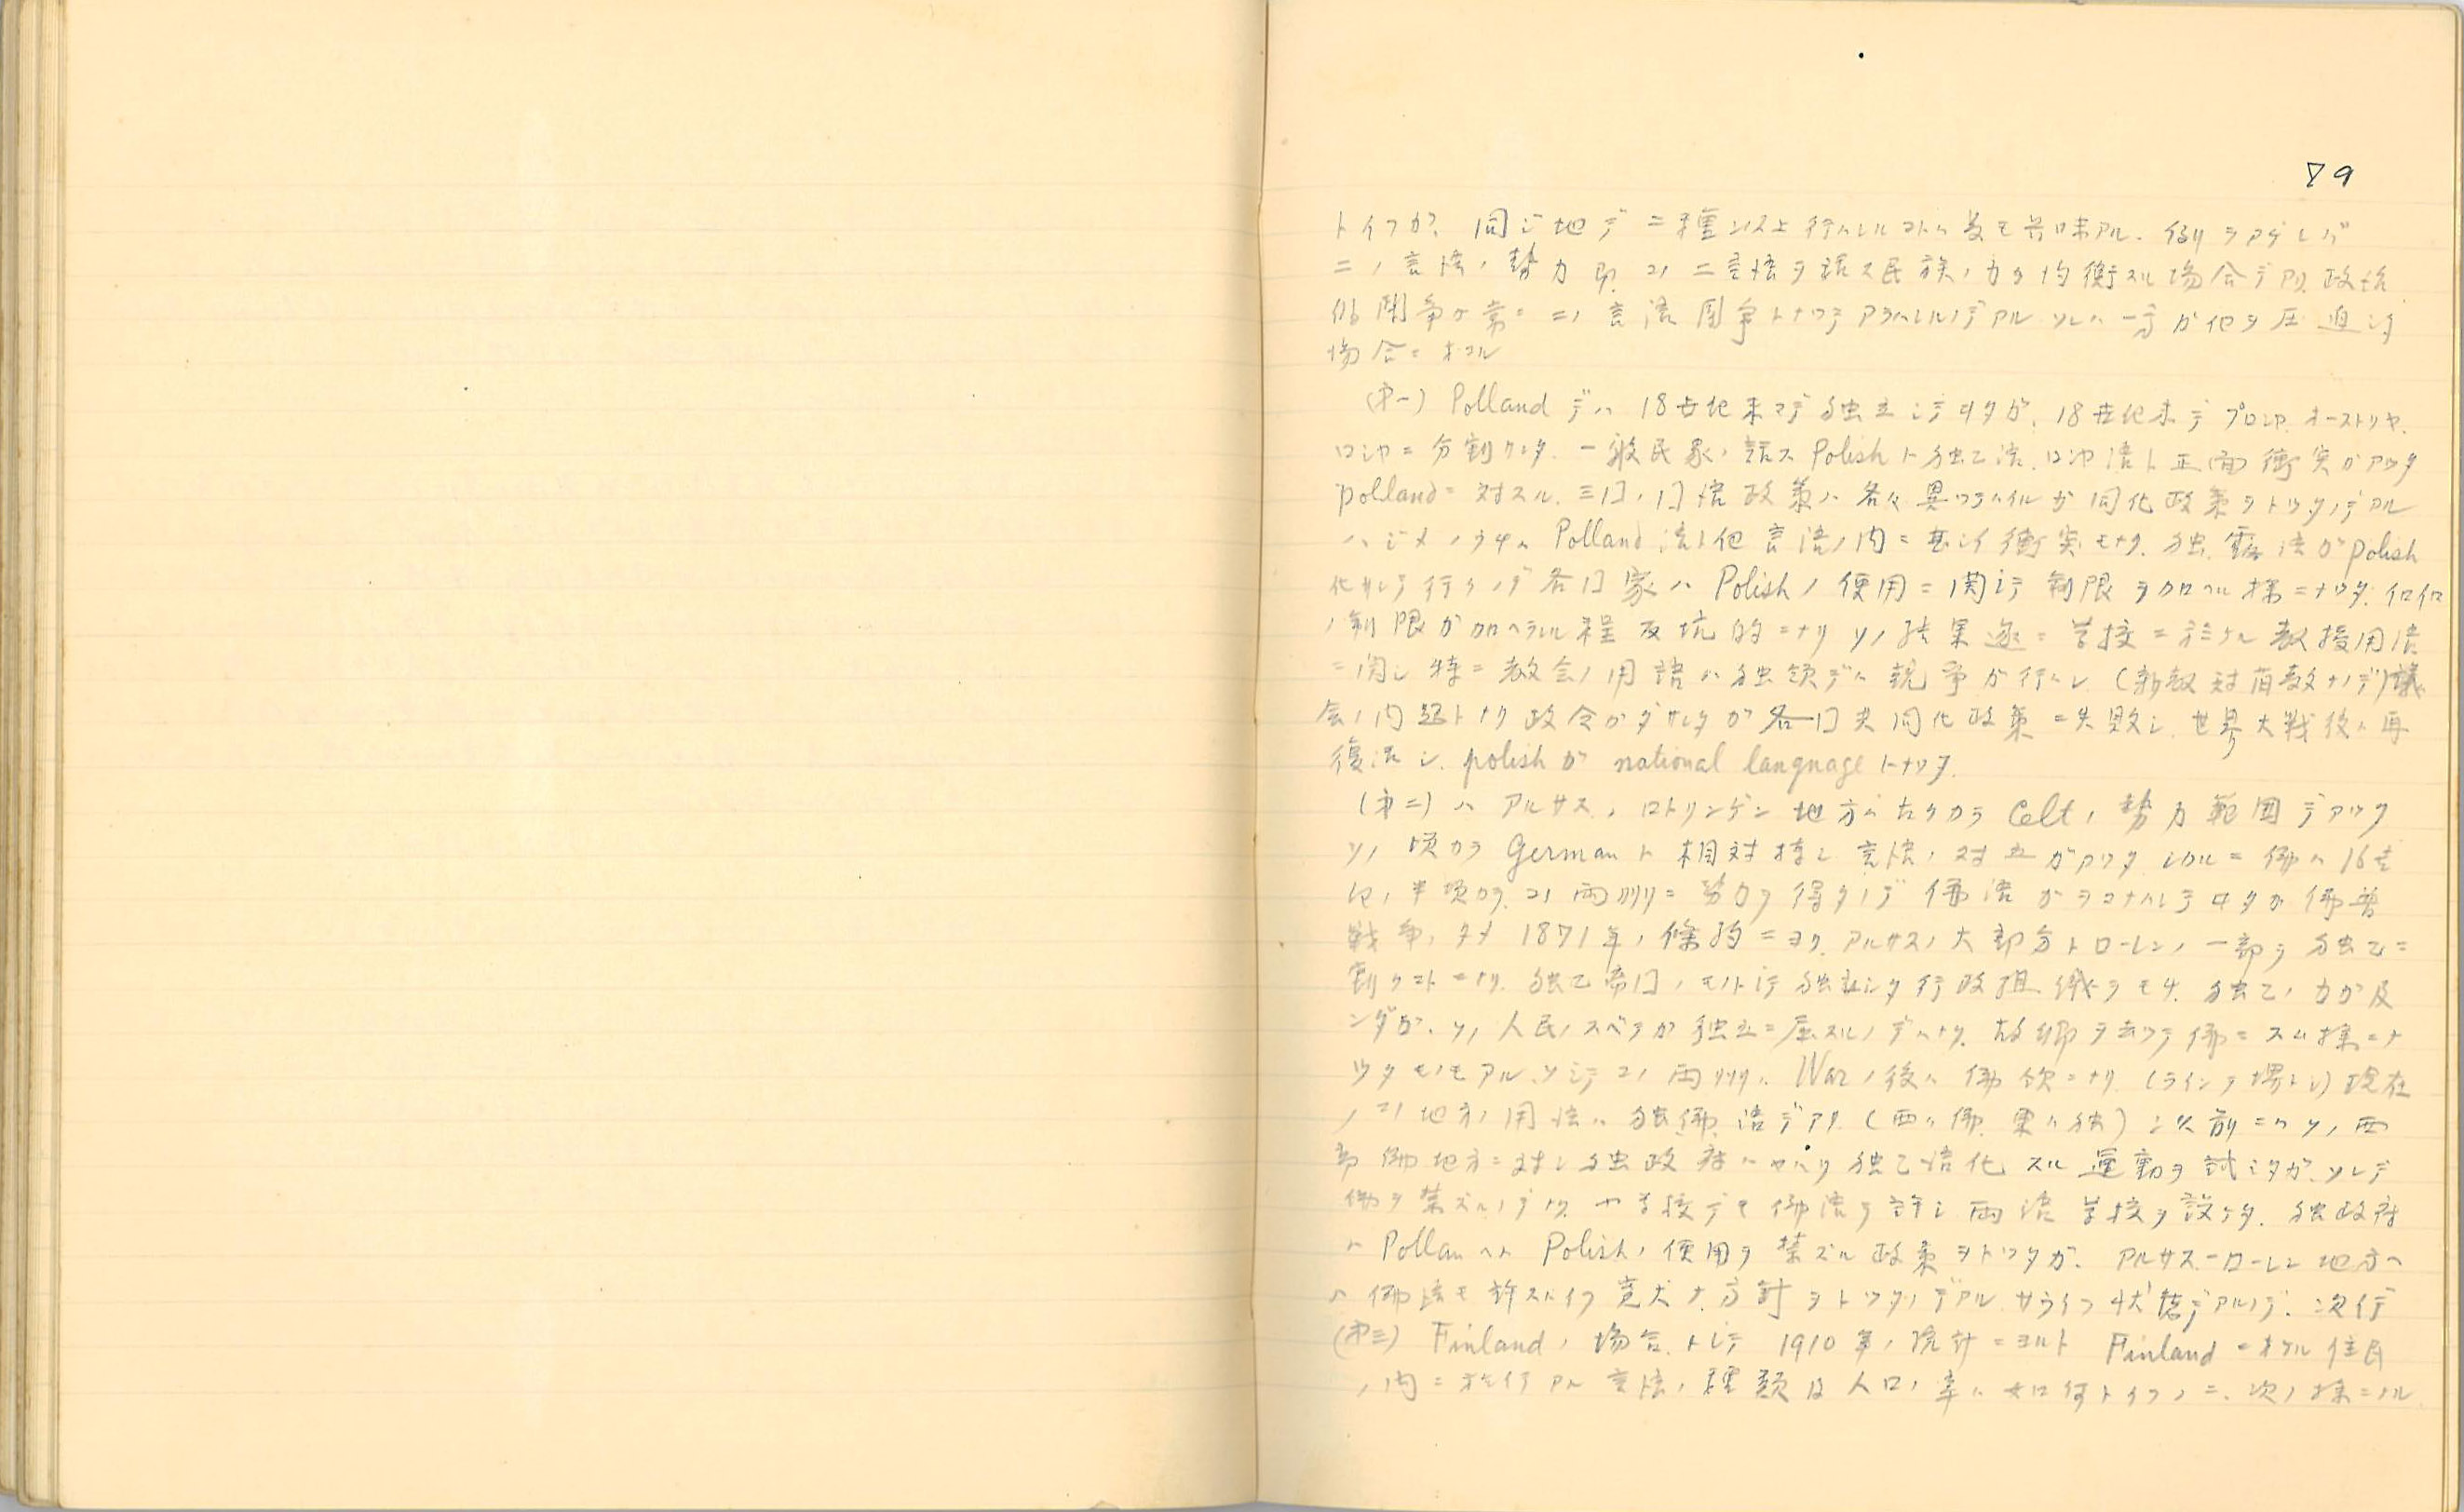 89
トイフガ、同ジ地デ二種以上行ハレルコトハ最モ興味アル.例ヲアゲレバ
二ノ言語ノ勢力即コノ二言語ヲ話ス民族ノ力ガ均衡スル場合デアリ.政治
的鬪争ガ常ニコノ言語鬪争トナツテアラハレルノデアル ソレハ一方ガ他ヲ圧迫シタ
場合ニオコル
(才一) Polland デハ 18世紀末マデ独立シテヰタガ、18世紀末デプロシヤ.オーストリヤ.
ロシヤニ分割サレタ.一般民衆ノ話ス Polish ト独乙語.ロシヤ語ト正面衝突ガアツタ
polland ニ対スル.三囗ノ囗語政策ハ各々異ツテハイルガ同化政策ヲトツタノデアル
ハジメノウチハ Polland 語ト他言語ノ内ニ甚シイ衝突モナク.独.露語ガ polish
化サレテ行クノデ各囗家ハ Polish ノ使用ニ関シテ制限ヲ加ヘル様ニナツタ.イロイロ
ノ制限ガ加ヘラレル程反抗的ニナリ ソノ結果遂ニ学校ニ於ケル教授用語
ニ関シ特ニ教会ノ用語ハ独領デハ競争ガ行ハレ (新教対旧教ナノデ)議
会ノ问題トナリ政令ガダサレタガ各囗共同化政策ニ失敗シ.世界大戦後ハ再
復活シ. polish ガ national language トナツタ.
(才二) ハアルサス.ロトリンゲン地方ハ古クカラ Celt ノ勢力範囲デアツタ
ソノ頃カラ German ト相対峙シ言語ノ対立ガアツタ シカルニ佛ハ16世
紀ノ半頃カラ.コノ両州ニ勢力ヲ得タノデ佛語ガオコナハレテヰタガ佛普
戦争ノタメ 1871年ノ條約ニヨリ.アルサスノ大部分トローレンノ一部ヲ独乙ニ
割クコトニナリ.独乙帝囗ノモトニ独立シタ行政組織ヲモチ.独乙ノ力ガ及
ンダガ.ソノ人民ノスベテガ独乙ニ屈スルノデハナク.故郷ヲ去ツテ佛ニスム様ニナ
ツタモノモアル.ソシテコノ両州ハ War ノ後ハ佛領ニナリ.(ラインヲ堺トシ)現在
ノコノ地方ノ用語ハ独佛語デアリ.(西ハ佛.東ハ独) 以前ニハソノ西
部佛地方ニ対シ独政府ハヤハリ独乙語化スル運動ヲ試ミタガ.ソレデ
佛ヲ禁ズルノデナク.小学校デモ佛語ヲ許シ両語学校ヲ設ケタ.独政府
ハ Pollan ヘハ Polish ノ使用ヲ禁ズル政策ヲトツタガ.アルサス-ローレン地方ヘ
ハ佛語モ許ストイフ寛大ナ方針ヲトツタノデアル.サウイフ状態デアルノデ.
(才三) Finland ノ場合.トシテ 1910年ノ統計ニヨルト Finland ニオケル住民
ノ内ニ於イテアル言語ノ種類及人口ノ率ハ如何トイフノニ、次ノ様ニナル